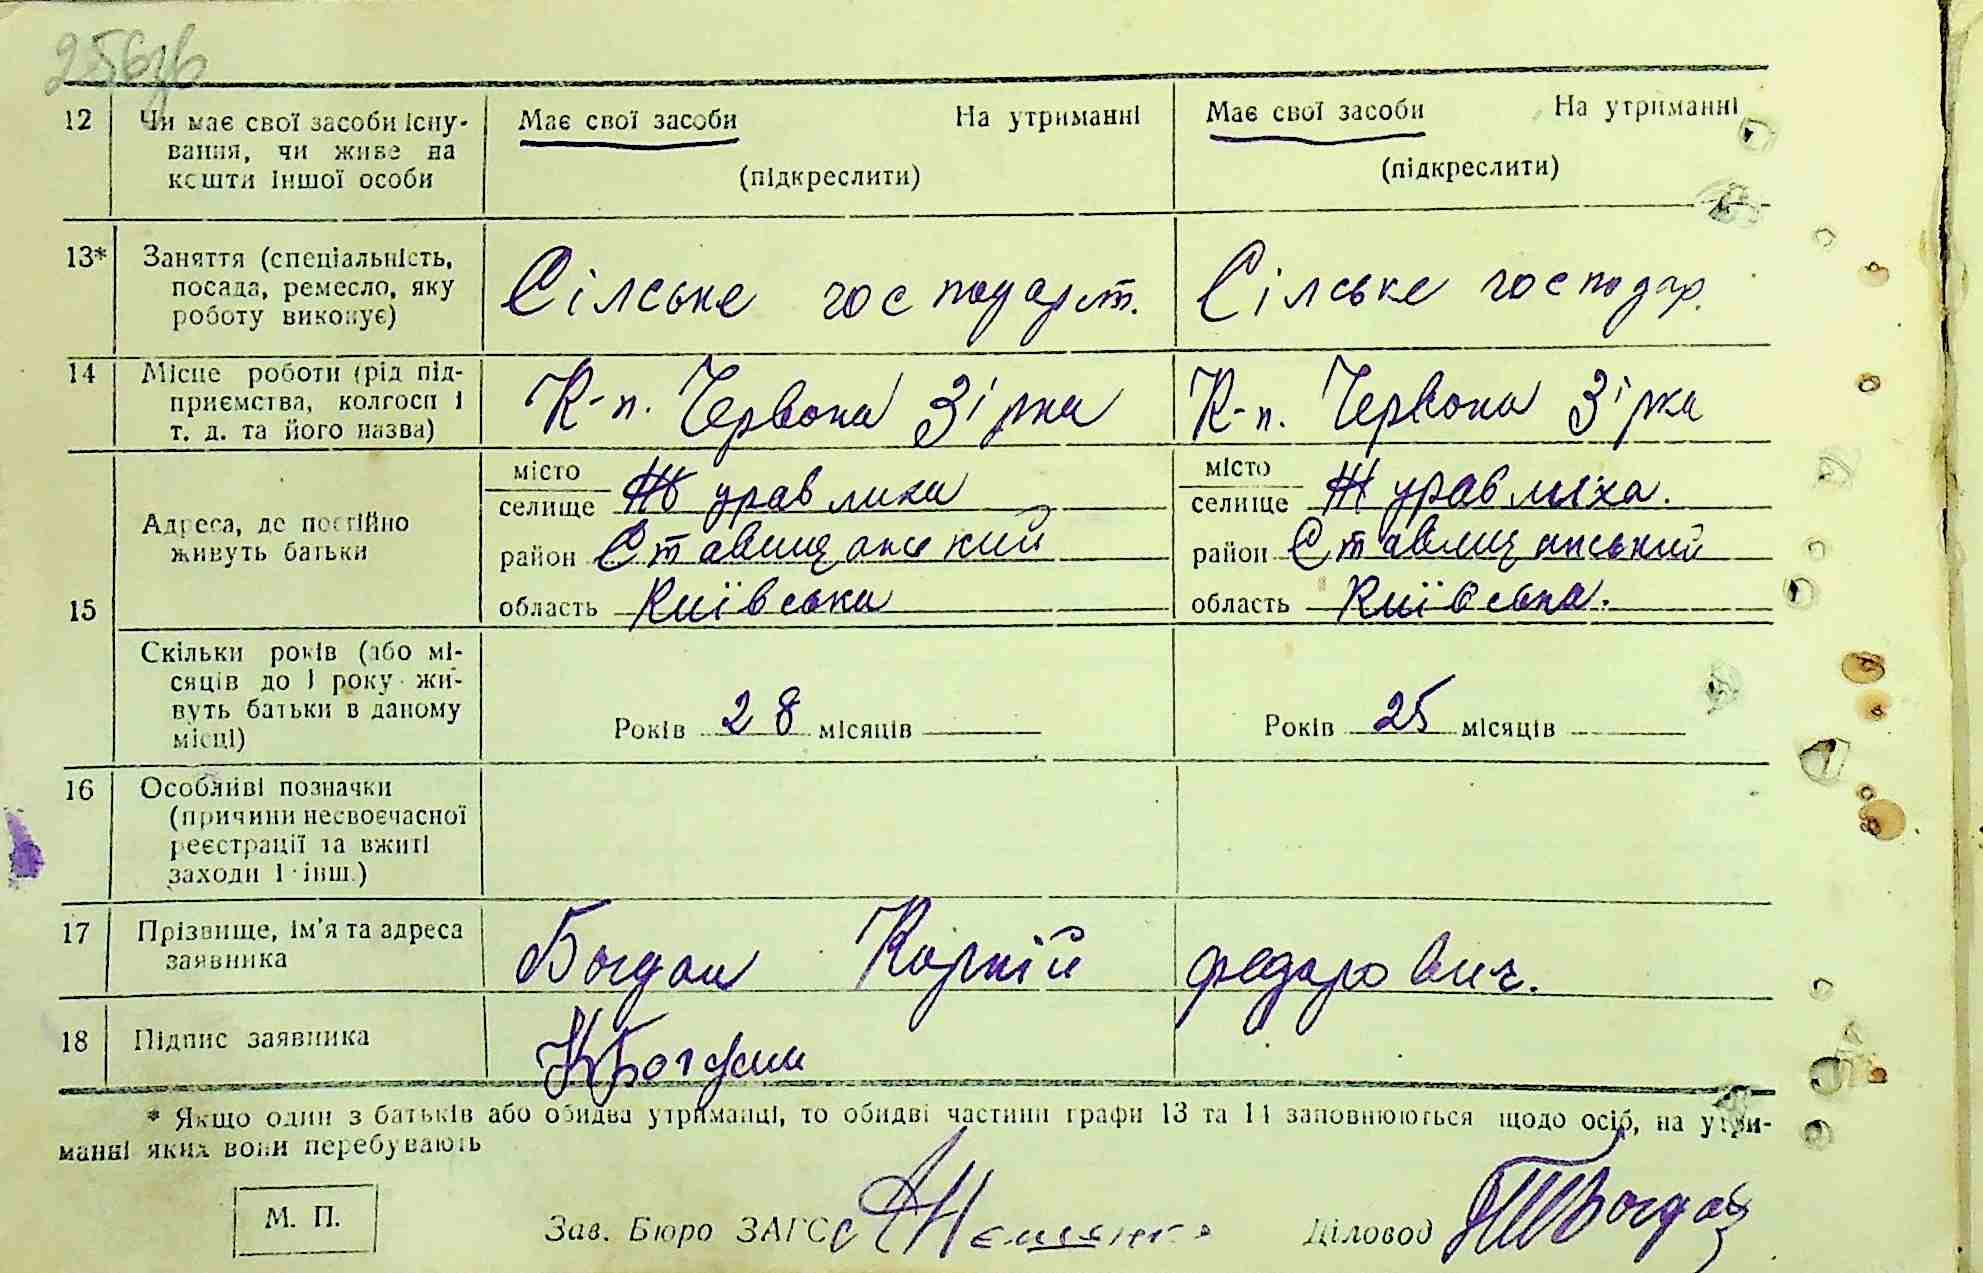 256зв
12 Чи має свої засоби існу- Має свої засоби На утриманні Має свої засоби На утриманні
вання, чи живе на
кошти іншої особи (підкреслити) (підкреслити)
13* Заняття (спеціальність,
посада, ремесло, яку Сілське господарст. Сілське господар.
роботу виконує)
14 Місце роботи (рід під-
приємства, колгосп і К-п. Червона Зірка К-п. Червона Зірка
т. д. та його назва)
місто місто
селище Журавлиха селище Журавлиха.
Адреса, де постійно
живуть батьки район Ставищанский район Ставищанський
15 область Київська область Київська.
Скільки років (або мі-
сяців до 1 року жи-
вуть батьки в даному Років 28 місяців Років 25 місяців
місці)
16 Особливі позначки
(причини несвоєчасної
реєстрації та вжиті
заходи і інш.)
17 Прізвище, ім'я та адреса Богдан Корній Федорович.
заявника
18 Підпис заявника КБогдан
* Якщо один з батьків або обидва утриманці, то обидві частини графи 13 та 14 заповнюються щодо осіб, на утри-
манні яких вони перебувають
М. П. Зав. Бюро ЗАГС Діловод Богдан